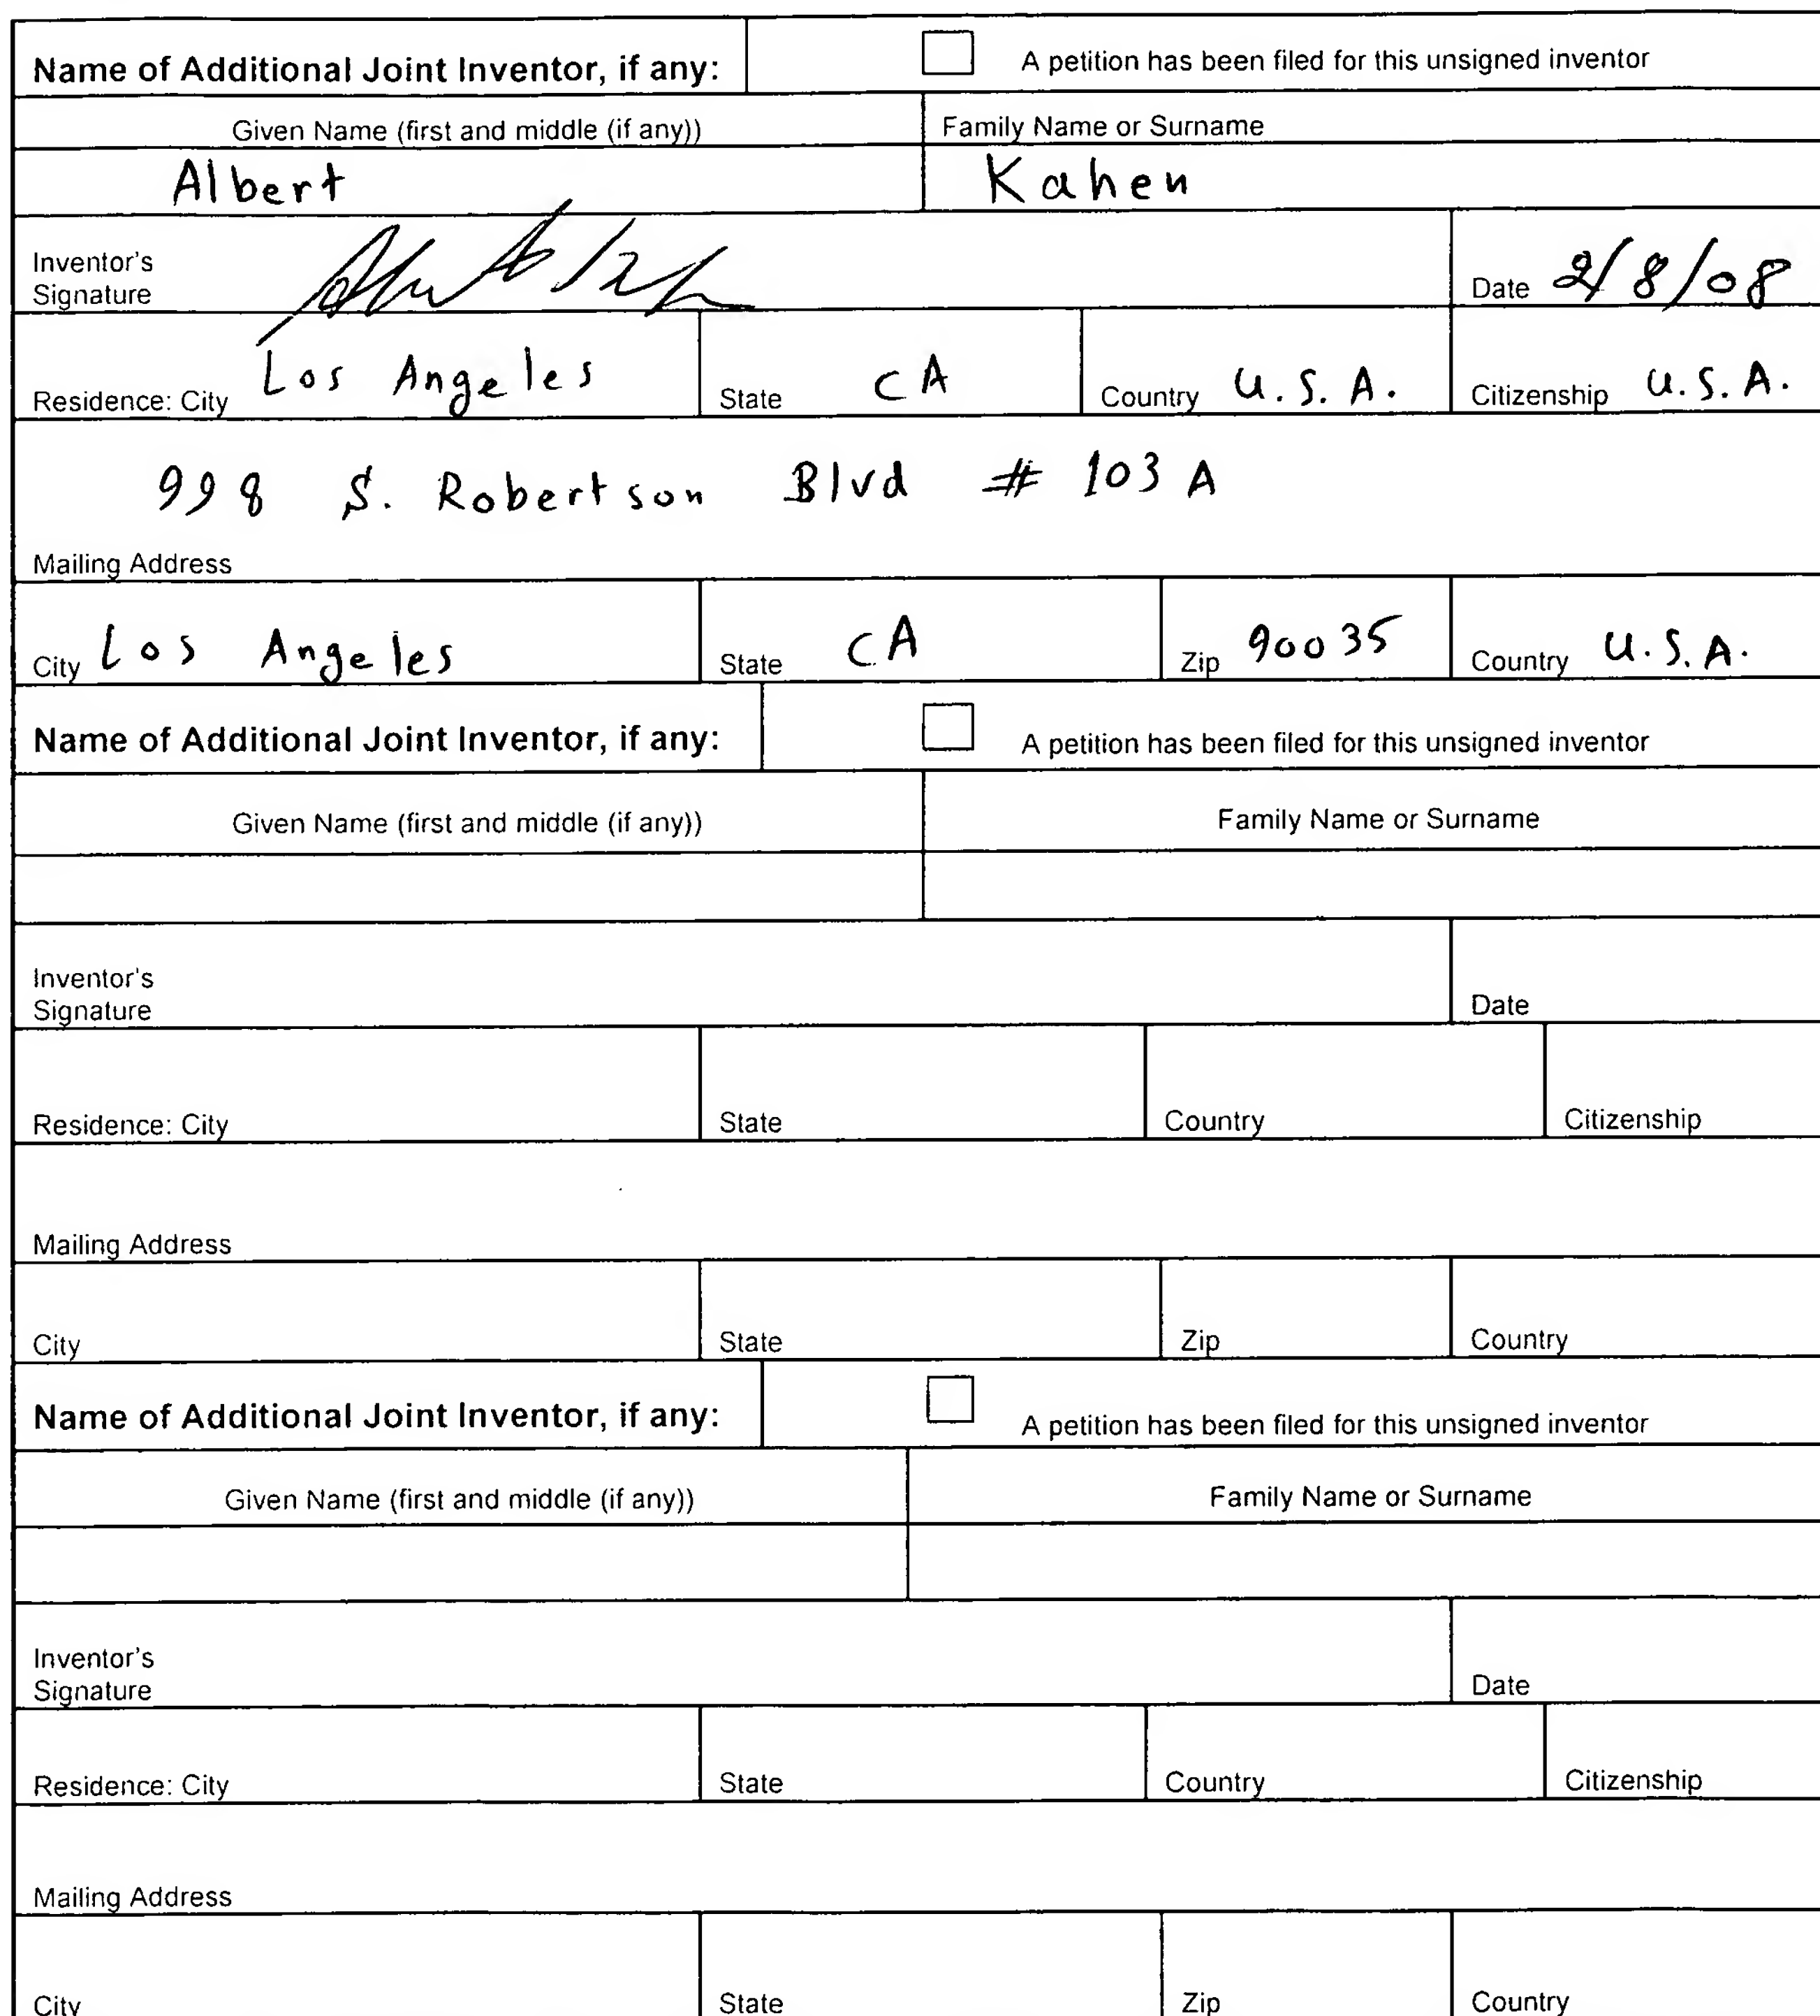 Name of Additional Joint Inventor, if any: A petition has been filed for this unsigned inventor
Given Name (first and middle (if any)) Family Name or Surname
Albert Kahen
Inventor's
Signature Date 2/8/08
Residence: City Los Angeles State CA Country U.S.A. Citizenship U.S.A.
998 S. Robertson Blvd # 103 A
Mailing Address
City Los Angeles State CA Zip 90035 Country U.S.A.
Name of Additional Joint Inventor, if any: A petition has been filed for this unsigned inventor
Given Name (first and middle (if any)) Family Name or Surname
Inventor's
Signature Date
Residence: City State Country Citizenship
Mailing Address
City State Zip Country
Name of Additional Joint Inventor, if any: A petition has been filed for this unsigned inventor
Given Name (first and middle (if any)) Family Name or Surname
Inventor's
Signature Date
Residence: City State Country Citizenship
Mailing Address
City State Zip Country